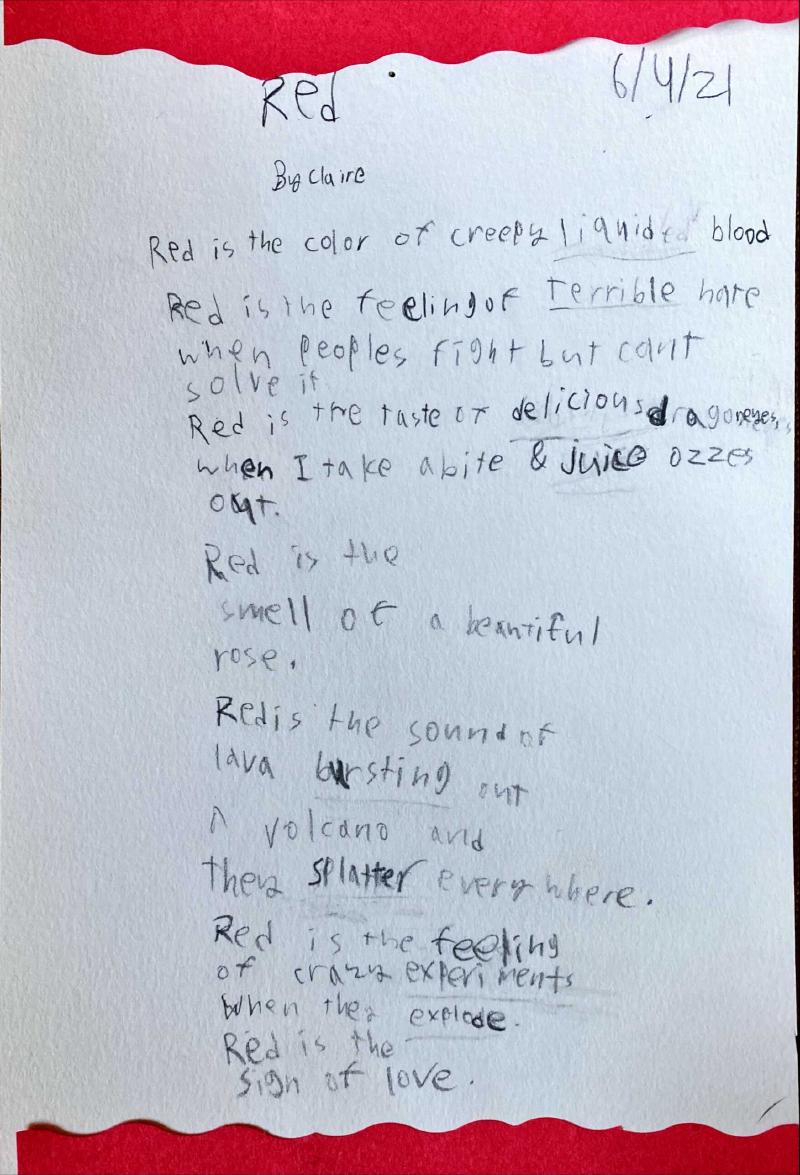 Red
6/4/21
By Claire
Red is the color of creepy liquided blood
Red is the feeling of terrible hate
when peoples fight but cant
solve it
Red is the taste of delicious dragoneyes,
when I take a bite & juice ozzes
out.
Red is the
smell of a beautiful
rose.
Red is the sound of
lava bursting out
A volcano and
they splatter everywhere.
Red is the feeling
of crazy experiments
when they explode.
Red is the
sign of love.